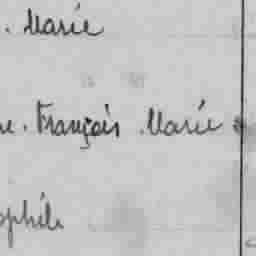 . Marie
ne. Français Marie
ophile